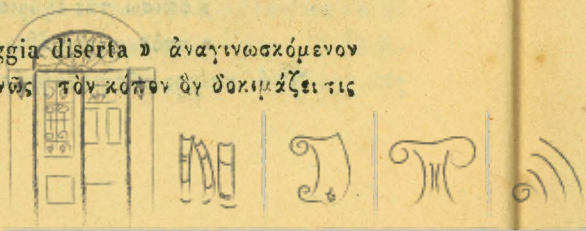 ggia diserta » ἀναγινωσκόμενον
νῶς τὸν κόπον ὃν δοκιμάζει τις